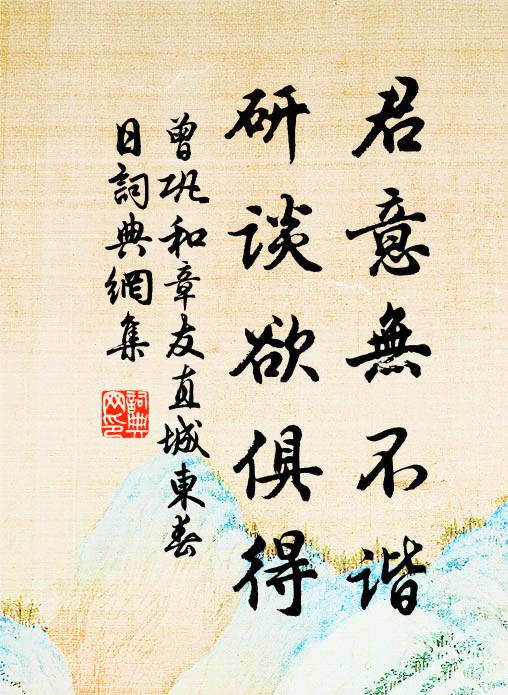 君意無不谐
研談欲俱得
曾巩和章友直城東春
日詞典網集
詞典网印